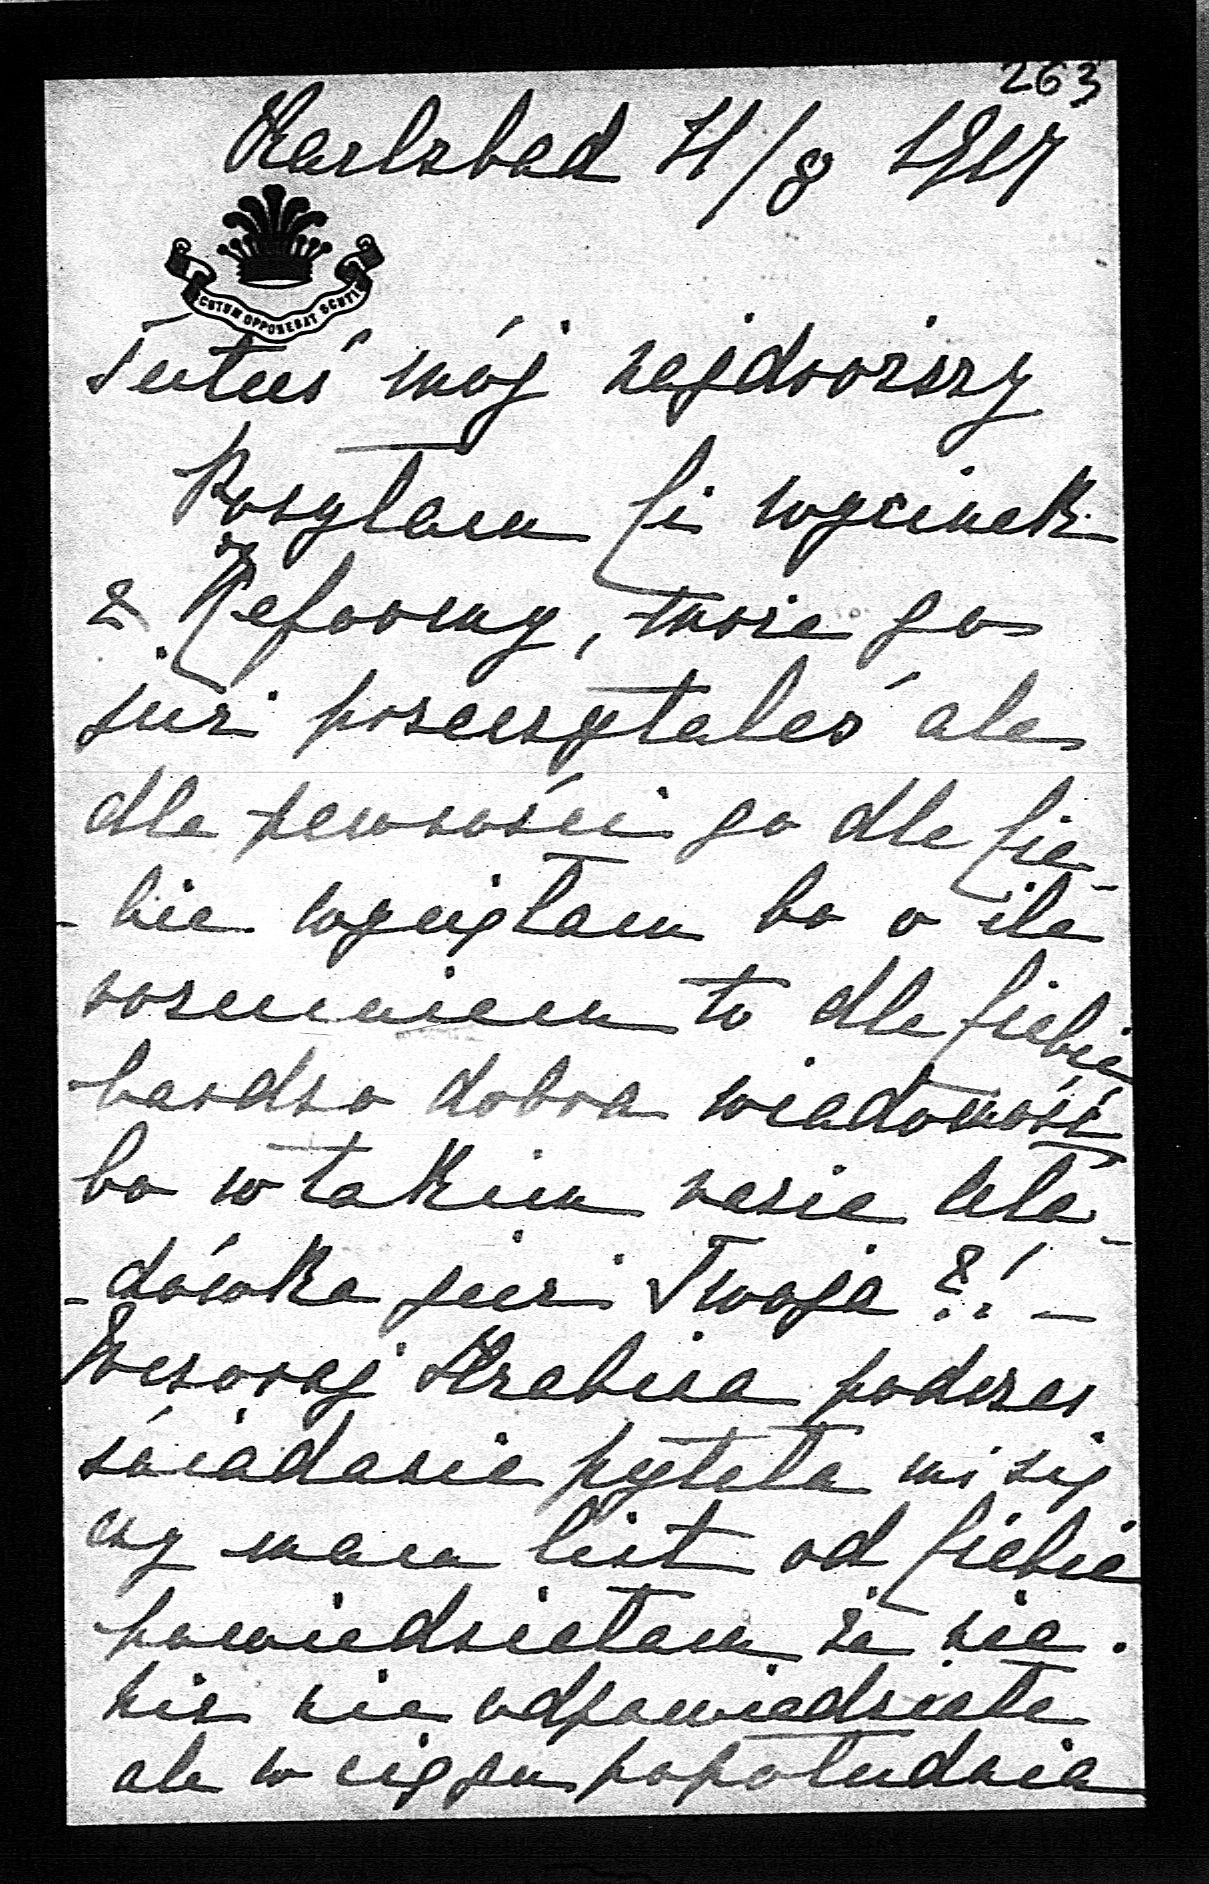 263
Karlsbad 11/8 1917
SCUTUM OPPONEBAT SCUTIS
Tutuś mój najdroższy
Posyłam Ci wycinek
z Reformy, może go
już przeczytałeś ale
dla pewności go dla Cie-
-bie wycięłam bo o ile
rozumiem to dla Ciebie
bardzo dobra wiadomość
bo w takim razie
-dówka już Twoja?! —
Wczoraj Hrabina podczas
śniadania pytała mi się
czy mam list od Ciebie
powiedziałam że nie.
Nic nie odpowiedziała
ale w ciągu popołudnia